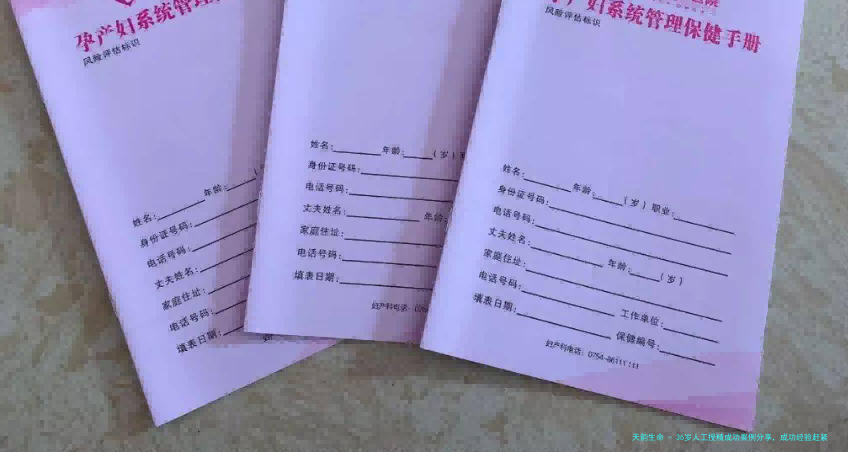 孕产妇系统管理
风险评估标识
姓名: 年龄:
身份证号码:
电话号码:
丈夫姓名:
家庭住址:
电话号码:
填表日期:
姓名: 年龄: (岁)
身份证号码:
电话号码:
丈夫姓名: 年龄:
家庭住址:
电话号码:
填表日期:
妇产科电话:
孕产妇系统管理保健手册
风险评估标识
姓名: 年龄: (岁) 职业:
身份证号码:
电话号码:
丈夫姓名: 年龄: (岁)
家庭住址:
电话号码: 工作单位:
填表日期: 保健编号:
妇产科电话: 0754-86111111
天韵生命 - 36岁人工授精成功案例分享，成功经验赶紧